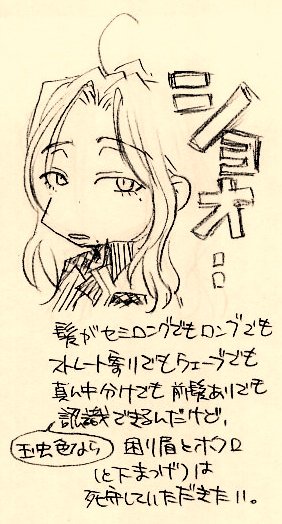 ニショオ…
髪がセミロングでもロングでも
ストレート寄りでもウェーブでも
真ん中分けでも前髪ありでも
認識できるんだけど、
玉虫色なら 困り眉とホクロ
(と下まつげ)は
死守していただきたい。